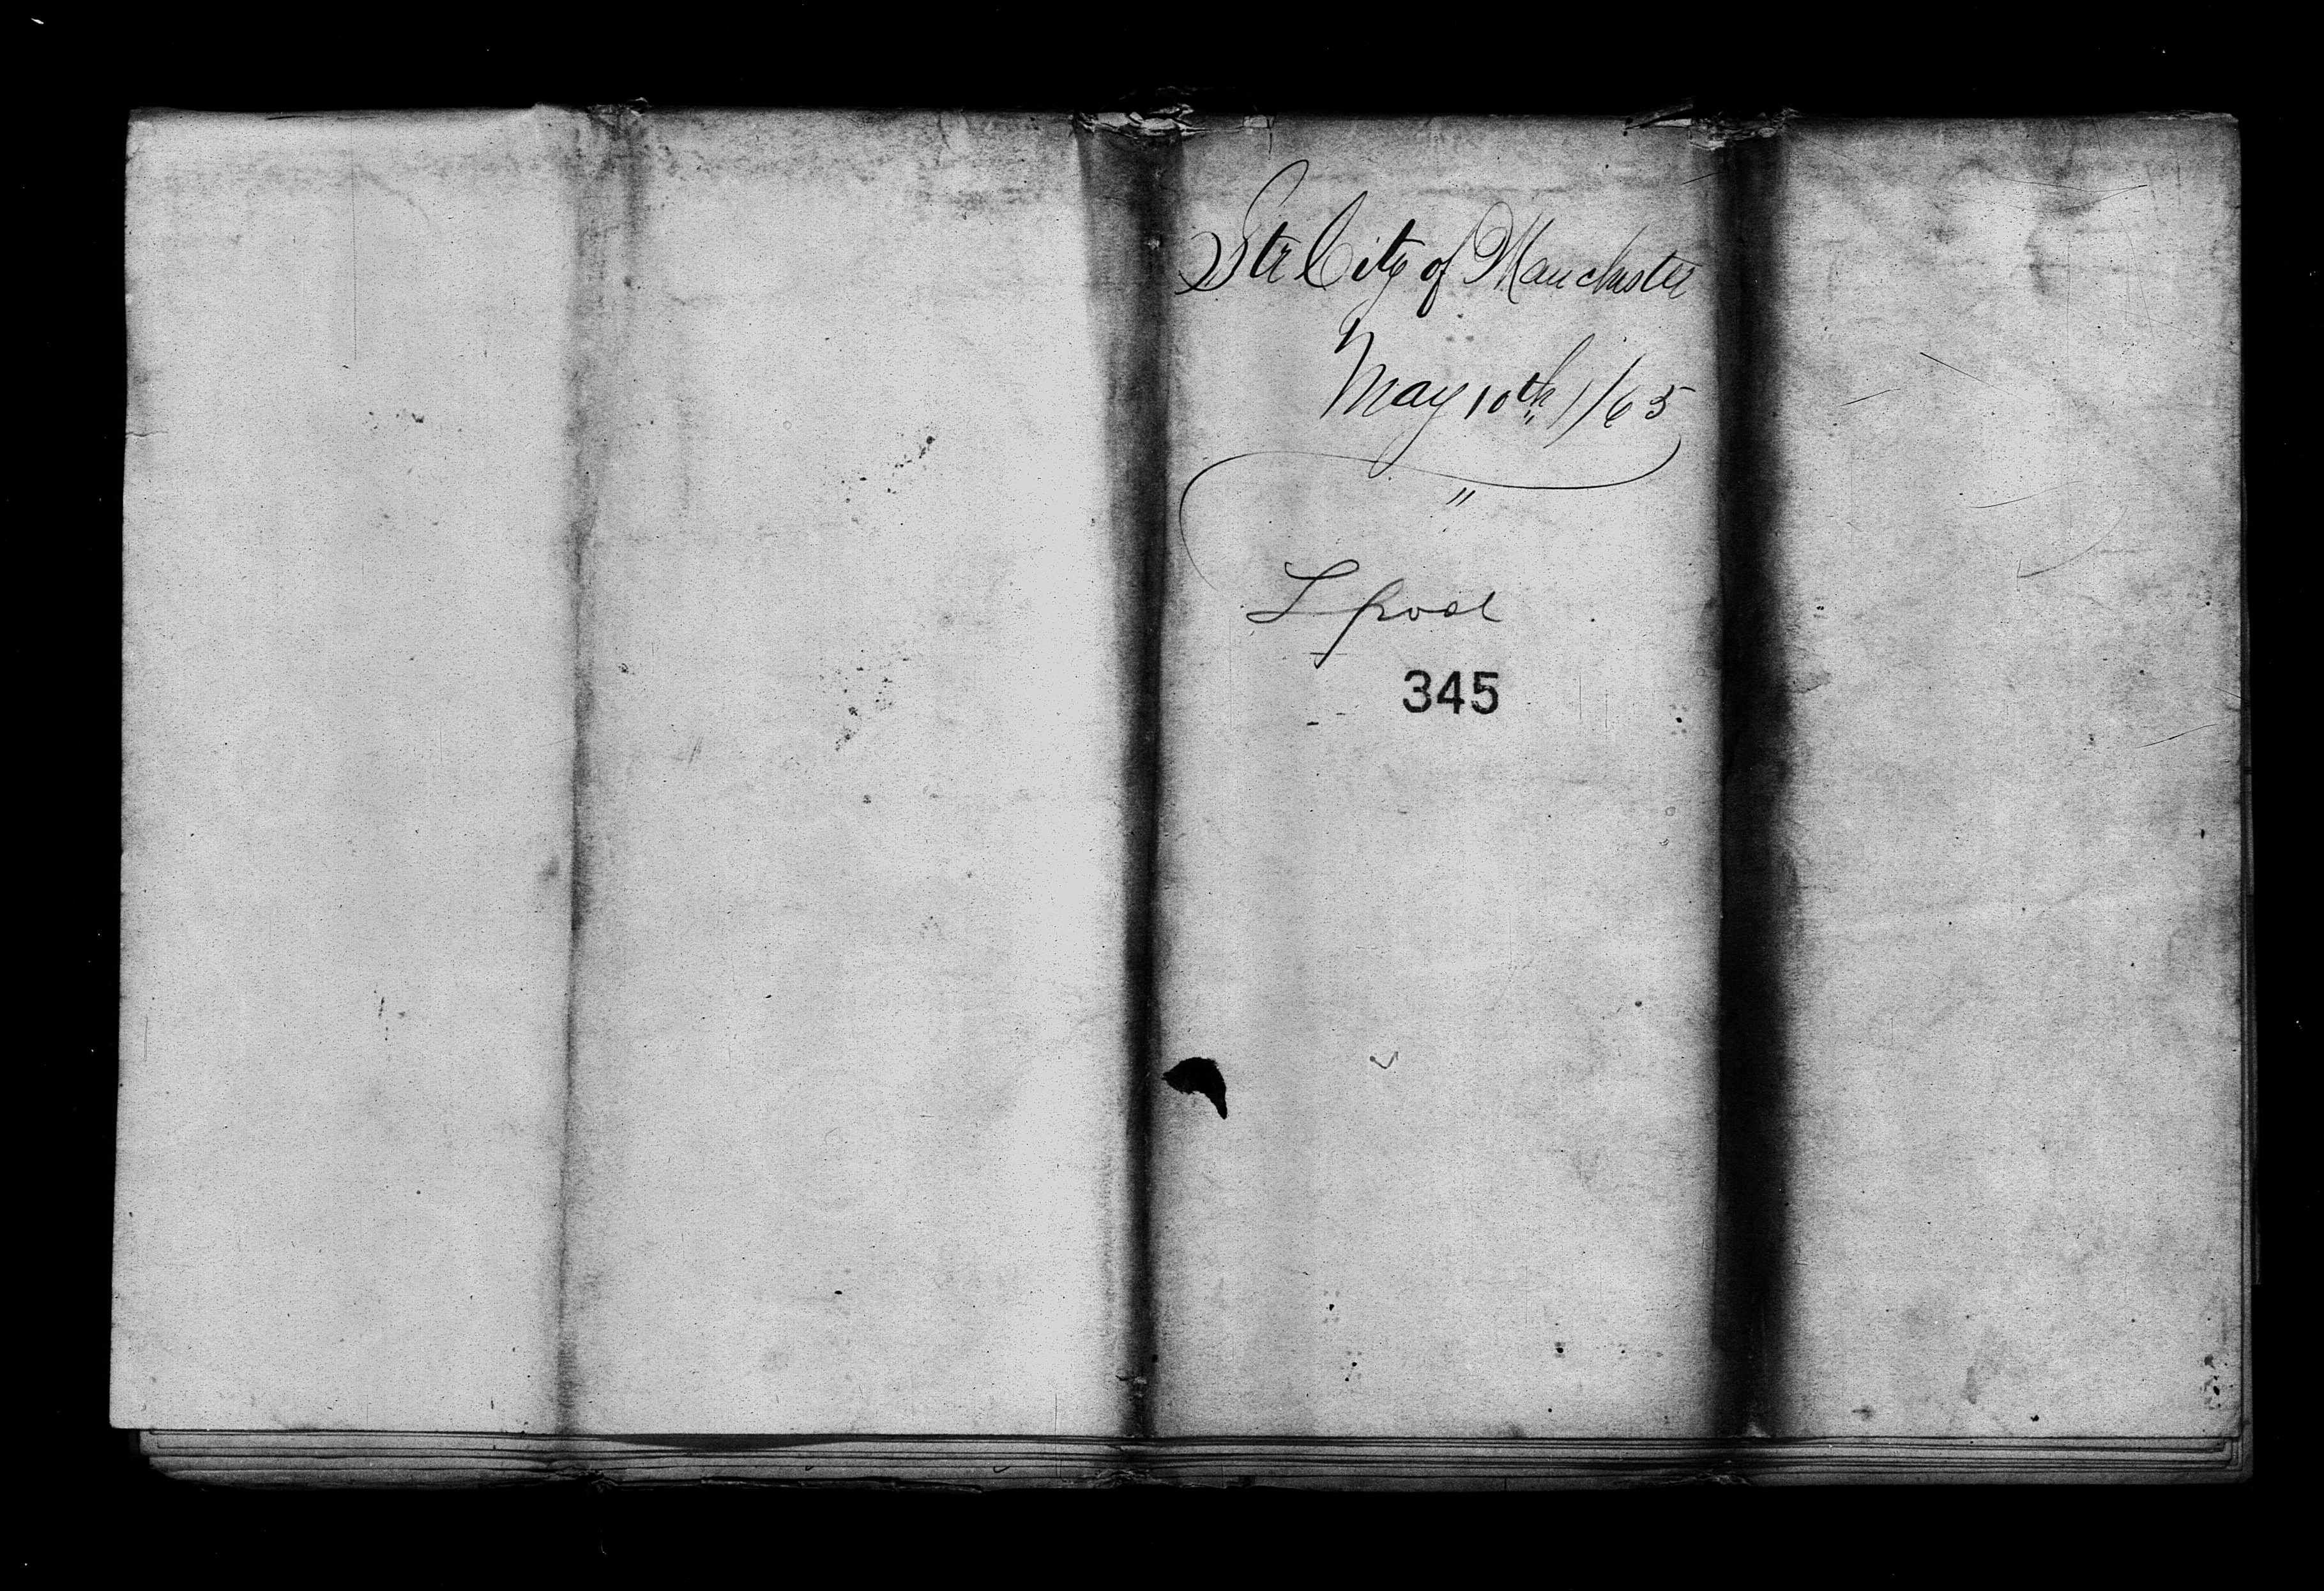 Str City of Manchester
May 10th / 65
"
Lpool
345